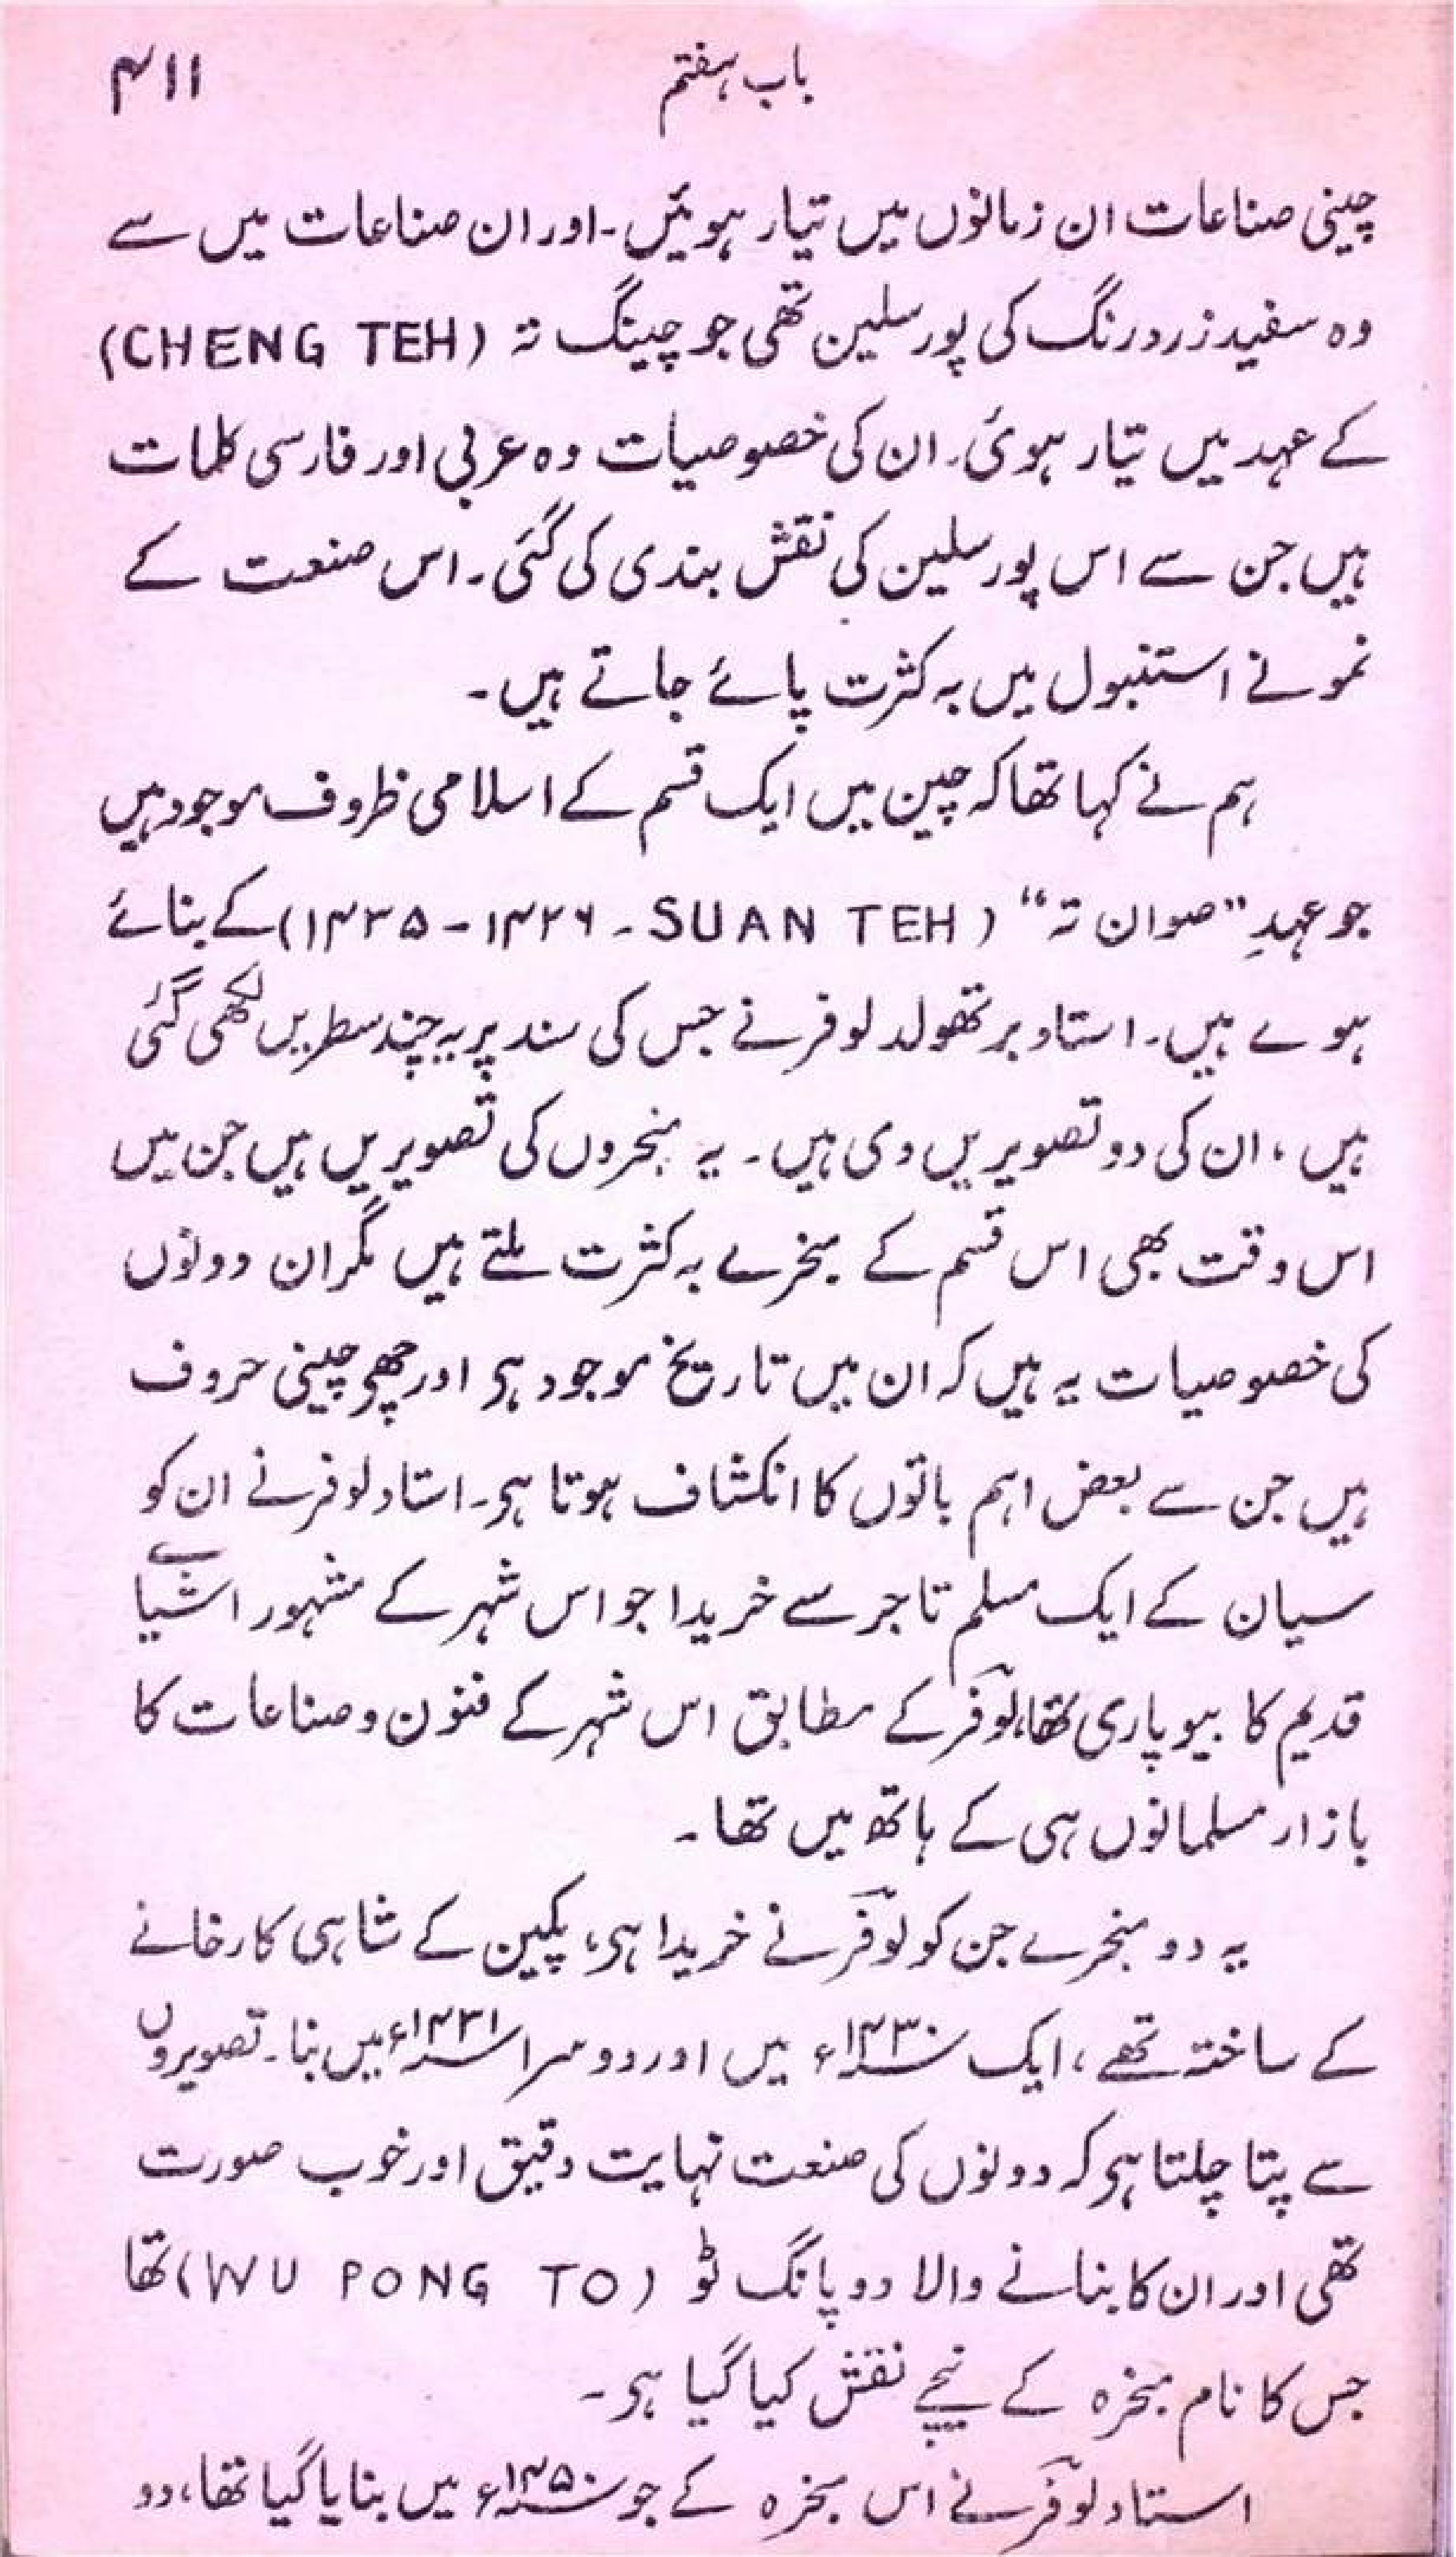 باب ہفتم ۴۱۱
چینی صناعات ان زمانوں میں تیار ہوئیں۔ اور ان صناعات میں سے
وہ سفید زرد رنگ کی پورسلین تھی جو چینگ تہ (CHENG TEH)
کے عہد میں تیار ہوئی۔ ان کی خصوصیات وہ عربی اور فارسی کلمات
ہیں جن سے اس پورسلین کی نقش بندی کی گئی۔ اس صنعت کے
نمونے استنبول میں بہ کثرت پائے جاتے ہیں۔
ہم نے کہا تھا کہ چین میں ایک قسم کے اسلامی ظروف موجود ہیں
جو عہدِ ”صوان تہ“ (SUAN TEH ۔ ۱۴۲۶ - ۱۴۳۵) کے بنائے
ہوے ہیں۔ استاد برتھولد لوفر نے جس کی سند پر یہ چند سطریں لکھی گئی
ہیں، ان کی دو تصویریں دی ہیں۔ یہ بنحروں کی تصویریں ہیں جن میں
اس وقت بھی اس قسم کے مبخرے بہ کثرت ملتے ہیں مگر ان دونوں
کی خصوصیات یہ ہیں کہ ان میں تاریخ موجود ہی اور چھو چینی حروف
ہیں جن سے بعض اہم باتوں کا انکشاف ہوتا ہی۔ استاد لوفر نے ان کو
سیان کے ایک مسلم تاجر سے خریدا جو اس شہر کے مشہور اشیاے
قدیم کا بیوپاری تھا، لوفر کے مطابق اس شہر کے فنون و صناعات کا
بازار مسلمانوں ہی کے ہاتھ میں تھا۔
یہ دو مبخرے جن کو لوفر نے خریدا ہی، پکین کے شاہی کارخانے
کے ساختہ تھے، ایک ۱۴۳۰ء میں اور دوسرا ۱۴۳۱ء میں بنا۔ تصویروں
سے پتا چلتا ہی کہ دونوں کی صنعت نہایت دقیق اور خوب صورت
تھی اور ان کا بنانے والا دو پانگ ٹو (WU PONG TO) تھا
جس کا نام مبخرہ کے نیچے نقش کیا گیا ہی۔
استاد لوفر نے اس مبخرہ کے جو ۱۴۵۰ء میں بنایا گیا تھا، دو